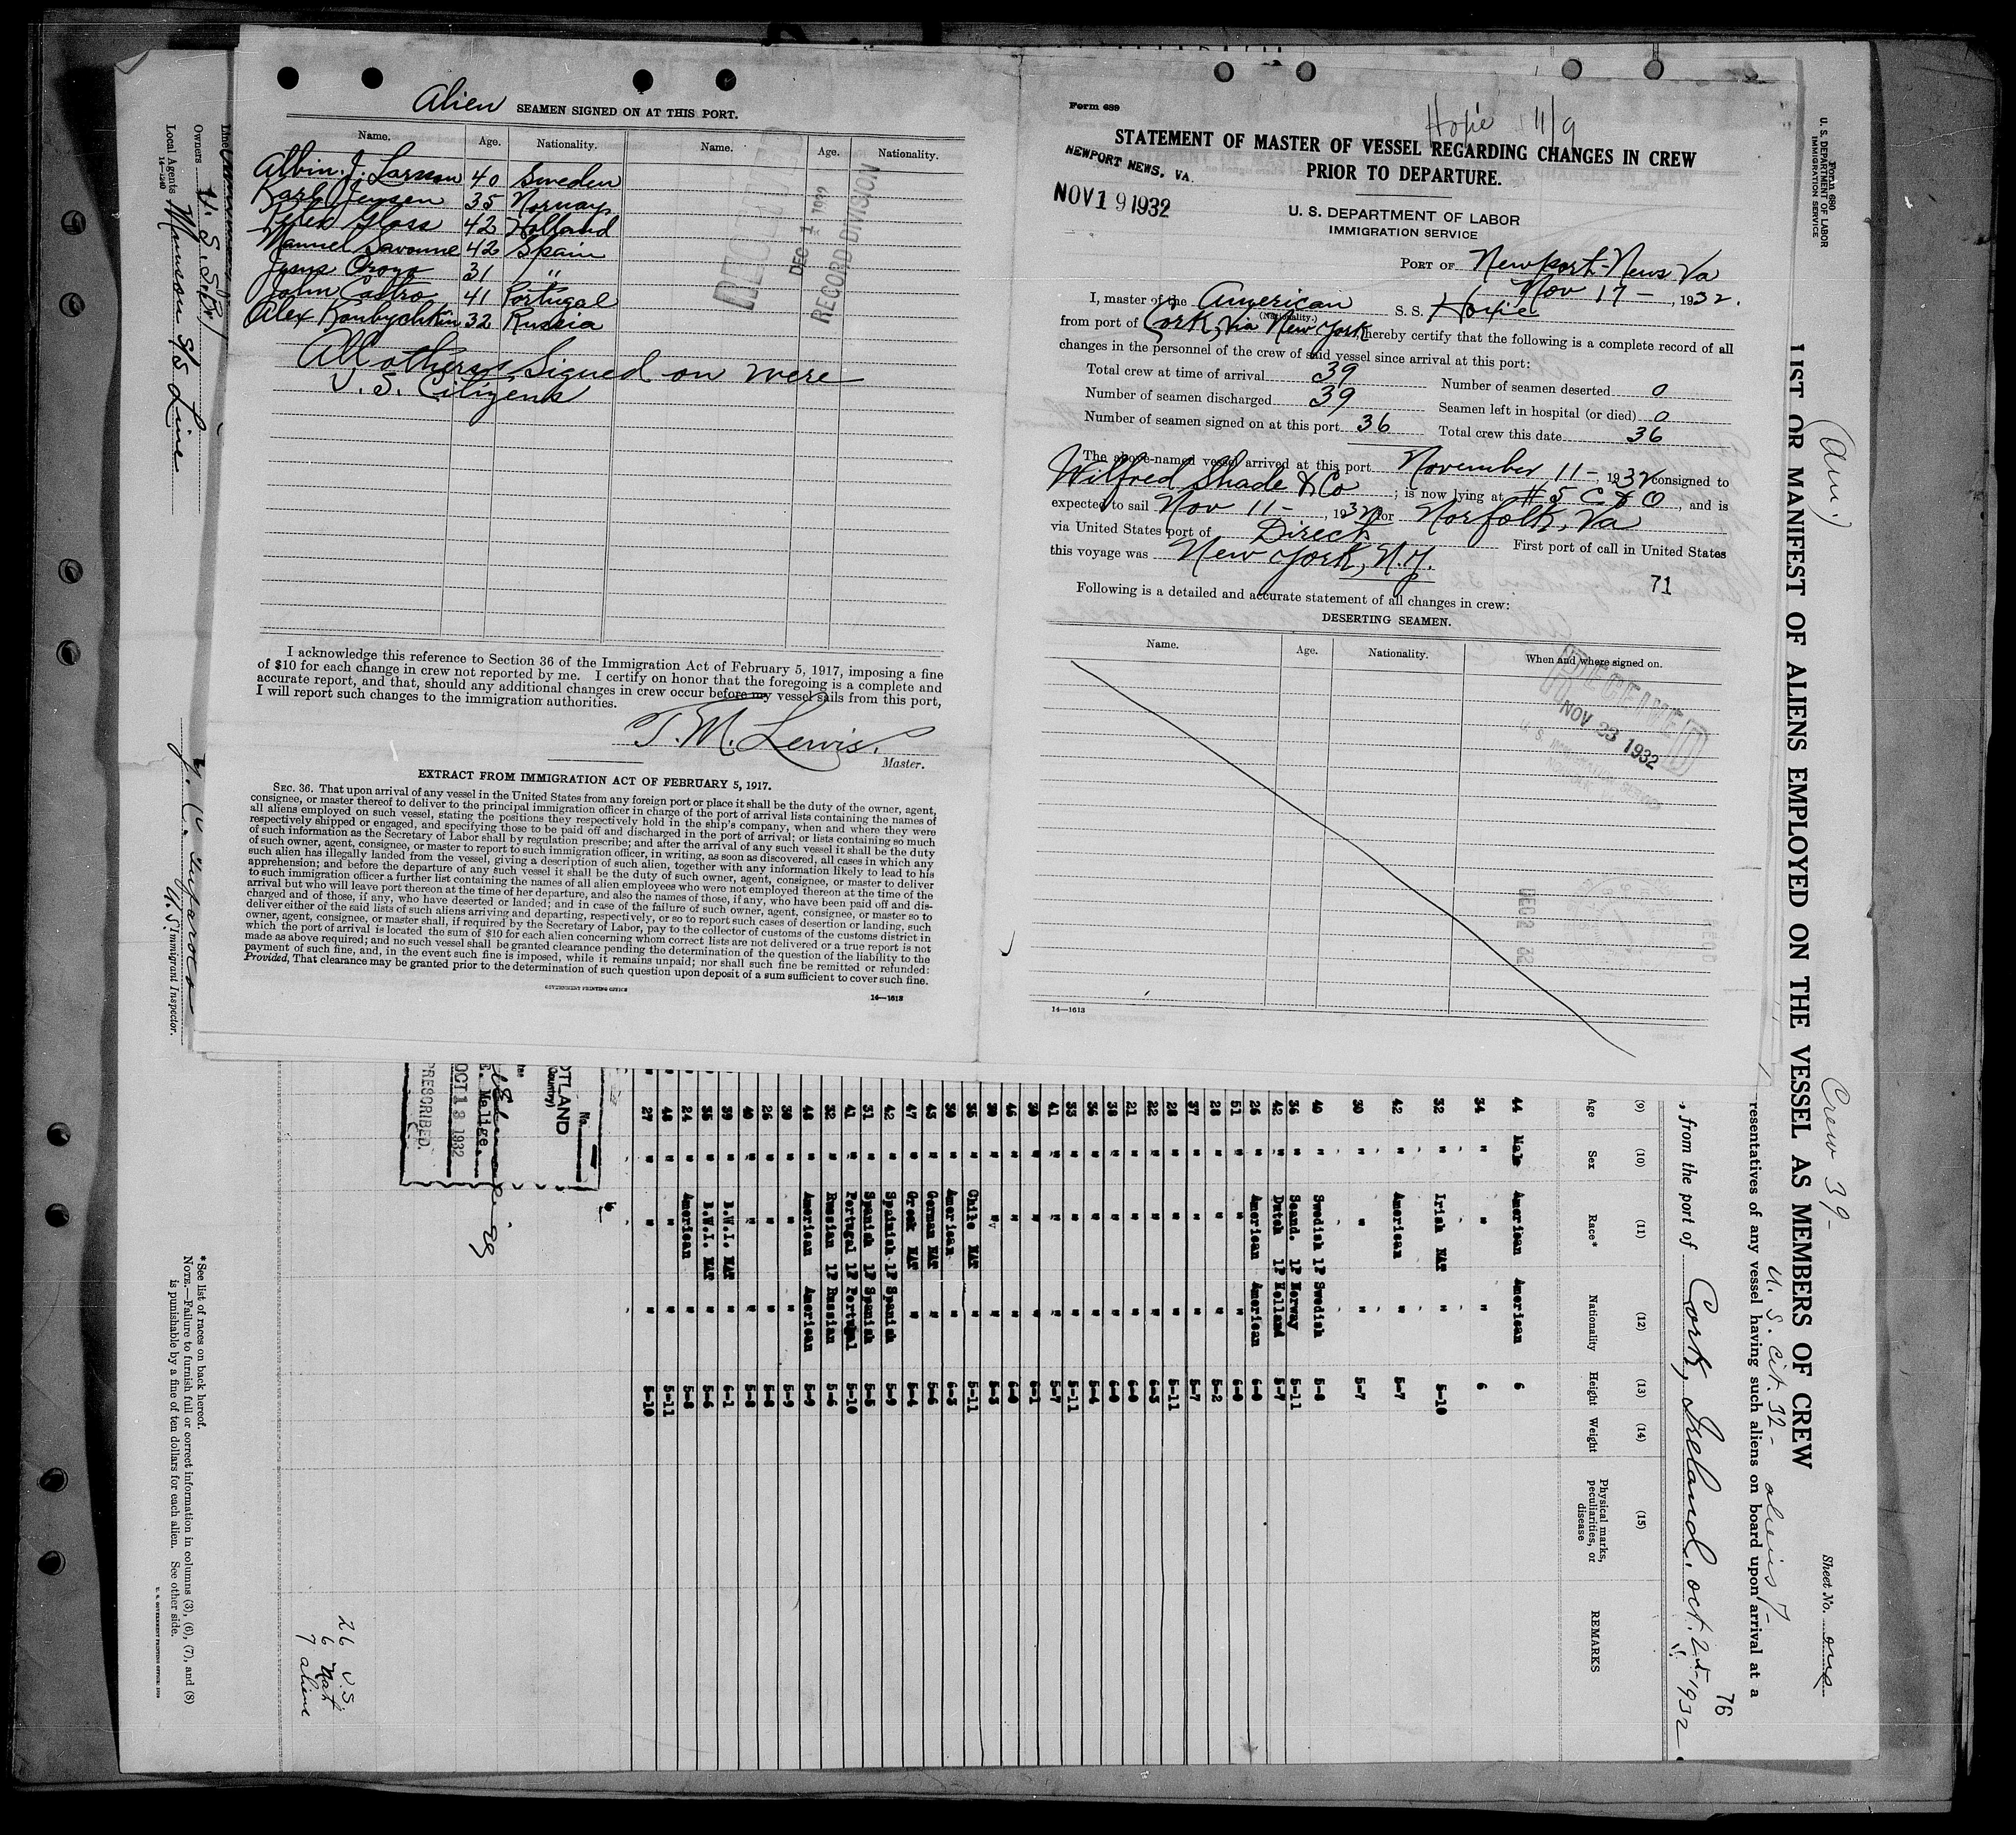 Alien SEAMEN SIGNED ON AT THIS PORT.
Name. Age. Nationality. Name. Age. Nationality.
Albin. J. Larsson 40 Sweden
Karl Jensen 35 Norway
Peter Glass 42 Holland
Manuel Savonne 42 Spain
31 "
John Castro 41 Portugal
Alex 32 Russia
All others signed on were
U. S. Citizens
RECEIVED
DEC 1
RECORD DIVISION
I acknowledge this reference to Section 36 of the Immigration Act of February 5, 1917, imposing a fine
of $10 for each change in crew not reported by me. I certify on honor that the foregoing is a complete and
accurate report, and that, should any additional changes in crew occur before my vessel sails from this port,
I will report such changes to the immigration authorities.
T. M. Lewis.
Master.
EXTRACT FROM IMMIGRATION ACT OF FEBRUARY 5, 1917.
SEC. 36. That upon arrival of any vessel in the United States from any foreign port or place it shall be the duty of the owner, agent,
consignee, or master thereof to deliver to the principal immigration officer in charge of the port of arrival lists containing the names of
all aliens employed on such vessel, stating the positions they respectively hold in the ship's company, when and where they were
respectively shipped or engaged, and specifying those to be paid off and discharged in the port of arrival; or lists containing so much
of such information as the Secretary of Labor shall by regulation prescribe; and after the arrival of any such vessel it shall be the duty
of such owner, agent, consignee, or master to report to such immigration officer, in writing, as soon as discovered, all cases in which any
such alien has illegally landed from the vessel, giving a description of such alien, together with any information likely to lead to his
apprehension; and before the departure of any such vessel it shall be the duty of such owner, agent, consignee, or master to deliver
to such immigration officer a further list containing the names of all alien employees who were not employed thereon at the time of the
arrival but who will leave port thereon at the time of her departure, and also the names of those, if any, who have been paid off and dis-
charged and of those, if any, who have deserted or landed; and in case of the failure of such owner, agent, consignee, or master so to
deliver either of the said lists of such aliens arriving and departing, respectively, or so to report such cases of desertion or landing, such
owner, agent, consignee, or master shall, if required by the Secretary of Labor, pay to the collector of customs of the customs district in
which the port of arrival is located the sum of $10 for each alien concerning whom correct lists are not delivered or a true report is not
made as above required; and no such vessel shall be granted clearance pending the determination of the question of the liability to the
payment of such fine, and, in the event such fine is imposed, while it remains unpaid; nor shall such fine be remitted or refunded:
Provided, That clearance may be granted prior to the determination of such question upon deposit of a sum sufficient to cover such fine.
GOVERNMENT PRINTING OFFICE
14—1613
Form 689
Hoxie 11/9
STATEMENT OF MASTER OF VESSEL REGARDING CHANGES IN CREW
PRIOR TO DEPARTURE.
NEWPORT NEWS, VA.
NOV 19 1932
U. S. DEPARTMENT OF LABOR
IMMIGRATION SERVICE
PORT OF Newport-News Va
Nov 17 -, 1932.
I, master of the American S. S. Hoxie
(Nationality.)
from port of Cork, via New York, hereby certify that the following is a complete record of all
changes in the personnel of the crew of said vessel since arrival at this port:
Total crew at time of arrival 39 Number of seamen deserted 0
Number of seamen discharged 39 Seamen left in hospital (or died) 0
Number of seamen signed on at this port 36 Total crew this date 36
The above-named vessel arrived at this port November 11 -, 1932 consigned to
Wilfred Shade & Co; is now lying at # 5 C & O, and is
expected to sail Nov 11 -, 1932 for Norfolk, Va
via United States port of Direct First port of call in United States
this voyage was New York, N.Y.
71
Following is a detailed and accurate statement of all changes in crew:
DESERTING SEAMEN.
Name. Age. Nationality. When and where signed on.
RECEIVED
NOV 23 1932
DEC 2 32
14—1613
Form 680
U. S. DEPARTMENT OF LABOR
IMMIGRATION SERVICE
LIST OR MANIFEST OF ALIENS EMPLOYED ON THE VESSEL AS MEMBERS OF CREW
(Am.)
Crew 39 -
U. S. Cit. 32 - aliens 7 -
Sheet No. one
resentatives of any vessel having such aliens on board upon arrival at a
76
, from the port of Cork, Ireland, Oct. 2nd, 1932
(9) (10) (11) (12) (13) (14) (15)
Age Sex Race* Nationality Height Weight Physical marks, peculiarities, or disease REMARKS
44 Male American American 6
34 " " " 6
32 " Irish NAT " 5-10
42 " American " 5-7
30 " " " 5-7
40 " Swedish 1P Swedish 5-8
36 " Scand. 1P Norway 5-11
42 " Dutch 1P Holland 5-7
26 " American American 6-0
51 " " " 6-0
28 " " " 5-2
37 " " " 5-7
28 " " " 5-11
22 " " " 6-3
21 " " " 6-0
38 " " " 6-0
36 " " " 5-4
33 " " " 5-11
41 " " " 5-7
" " "
46 " " " 6-0
" " " 5-3
35 " Chile NAT " 5-11
" American " 6-3
43 " German NAT " 5-6
47 " Greek NAT " 5-4
42 " Spainish 1P Spanish 5-9
31 " Spanish 1P Spanish 5-5
41 " Portugal 1P Portugal 5-10
32 " Russian 1P Russian 5-6
48 " American American 5-9
" " " 5-9
26 " " " 5-8
40 " " " 5-8
39 " B.W.I. NAT " 6-1
35 " B.W.I. NAT " 5-6
24 " American " 5-8
48 " " " 5-11
27 " " " 5-10
No.
OTLAND
Country)
E. Malige.
OCT 13 1932
PRESCRIBED.
26 U.S.
6 Nat
7 aliens
Line
Owners U. S. S. B.
Local Agents Munson S/S Line
14—1240
U. S. Immigrant Inspector.
* See list of races on back hereof.
NOTE.—Failure to furnish full or correct information in columns (3), (6), (7), and (8)
is punishable by a fine of ten dollars for each alien. See other side.
U. S. GOVERNMENT PRINTING OFFICE